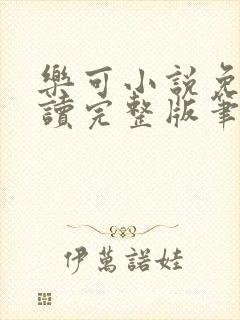 樂可小説免
讀完整版筆
伊萬諾娃